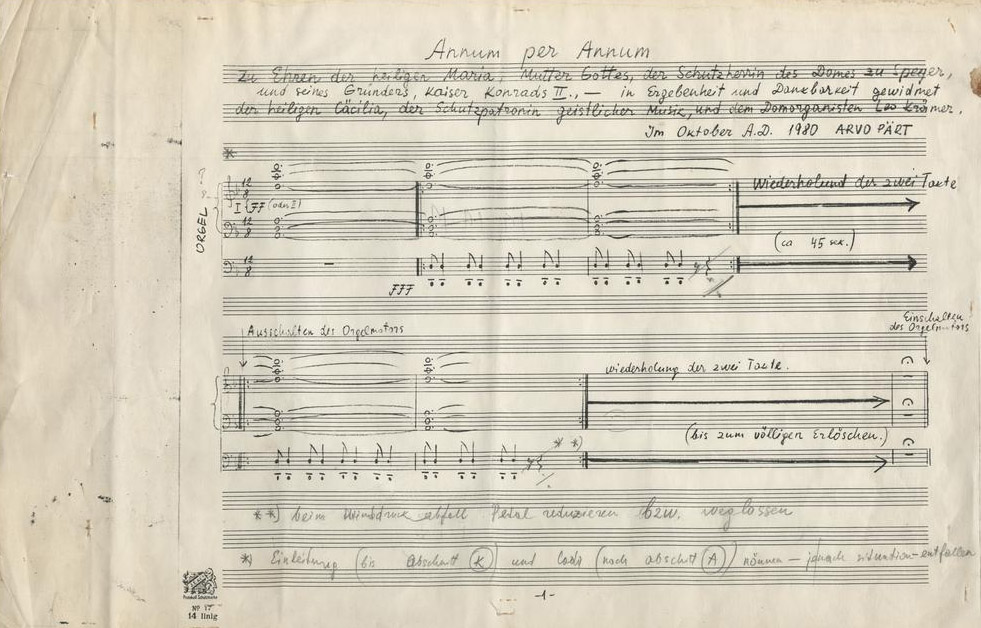 Annum per Annum
Zu Ehren der heiligen Maria, Mutter Gottes, der Schutzherrin des Domes zu Speyer,
und seines Gründers, Kaiser Konrads II., — in Ergebenheit und Dankbarkeit gewidmet
der heiligen Cäcilia, der Schutzpatronin geistlicher Musik, und dem Domorganisten Leo Krämer.
Im Oktober A.D. 1980 ARVO PÄRT
*
ORGEL
12 8
I FF (oder I)
Wiederholund der zwei Taxte
12 8
(ca 45 sek.)
12 8
FFF
Ausschalten des Orgelmotors
Einschalten
des Orgelmotors
wiederholung der zwei Taxte.
(bis zum völligen Erlöschen.)
* *)
* *) beim Winddruckabfall Pedal reduzieren bzw. weglassen
*) Einleitung (bis Abschnitt K) und Coda (nach abschnitt A) können — jenach situation - entfallen
-1-
№ 17
14 linig